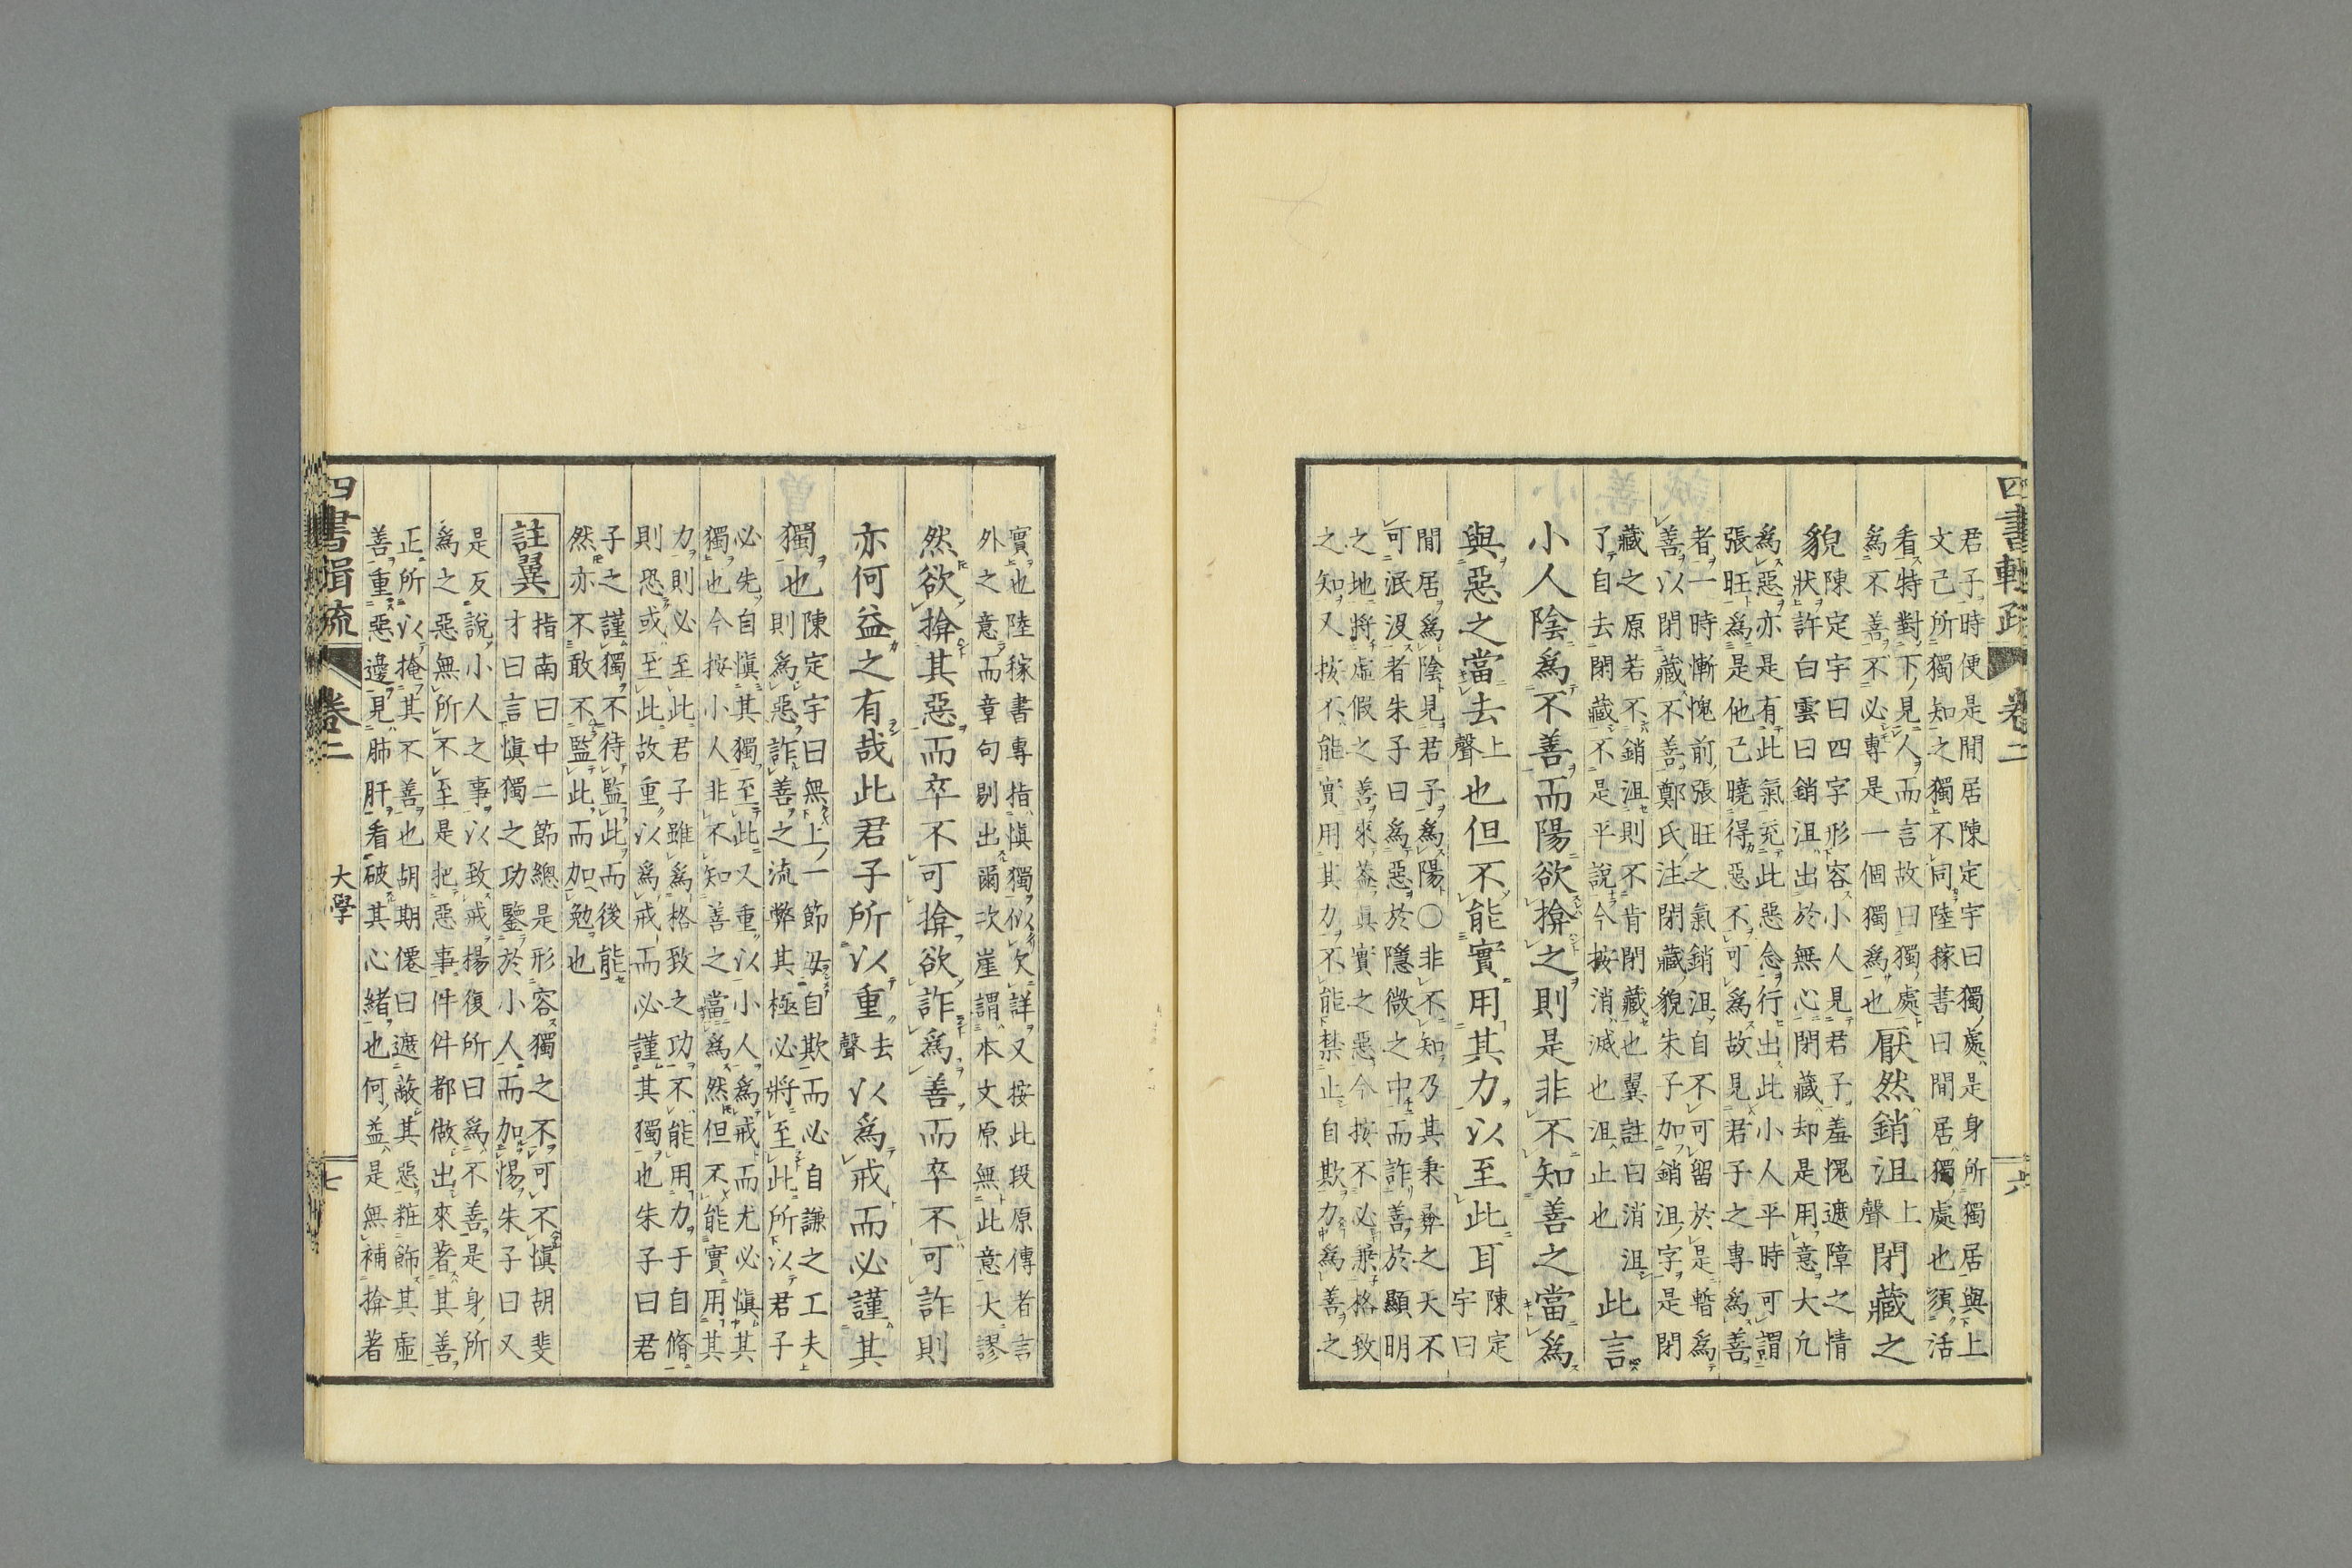 四書輯疏
卷二
六
君子時便是閒居陳定宇曰獨處是身所獨居與上
文己所獨知之獨不同陸稼書曰閒居獨處也須活
看特對下見人而言故曰獨處
爲不善不必專是一個獨爲也
厭然銷沮
上
聲
閉藏之
貌
陳定宇曰四字形容小人見君子羞愧遮障之情
狀許白雲曰銷沮出於無心閉藏却是用意大凢
爲惡亦是有此氣充此惡念行出此小人平時可謂
張旺爲是他已曉得惡不可爲故見君子之專爲善
者一時慚愧前張旺之氣銷沮自不可留於是暫爲
善以閉藏不善鄭氏注閉藏貌朱子加銷沮字是閉
藏之原若不銷沮則不肯閉藏也翼註曰消沮
了自去閉藏不是平說今按消滅也沮止也
此言
小人陰爲不善而陽欲揜之則是非不知善之當爲
與惡之當去
上
聲
也但不能實用其力以至此耳
陳定
宇曰
閒居爲陰見君子爲陽〇非不知乃其秉彝之天不
可泯沒者朱子曰爲惡於隱微之中而詐善於顯明
之地將虛假之善來蓋眞實之惡今按不必兼格致
之知又按不能實用其力不能禁止自欺力爲善之
實也陸稼書專指愼獨似欠詳又按此段原傳者言
外之意而章句剔出爾次崖謂本文原無此意大謬
然欲揜其惡而卒不可揜欲詐爲善而卒不可詐則
亦何益之有哉此君子所以重
去
聲
以爲戒而必謹其
獨也
陳定宇曰無上一節毋自欺而必自謙之工夫
則爲惡詐善之流弊其極必將至此所以君子
必先自愼其獨至此又重以小人爲戒而尤必愼其
獨也今按小人非不知善之當爲然但不能實用其
力則必至此君子雖爲格致之功不能用力于自脩
則恐或至此故重以爲戒而必謹其獨也朱子曰君
子之謹獨不待監此而後能
然亦不敢不監此而加勉也
註翼
指南曰中二節總是形容獨之不可不愼胡斐
才曰言愼獨之功鑒於小人而加惕朱子曰又
是反說小人之事以致戒揚復所曰爲不善是身所
爲之惡無所不至是把惡事件件都做出來著其善
正所以掩其不善也胡期僊曰遮蔽其惡粧飾其虛
善重惡邊見肺肝看破其心緒也何益是無補揜著
四書輯疏
卷二
大學
七